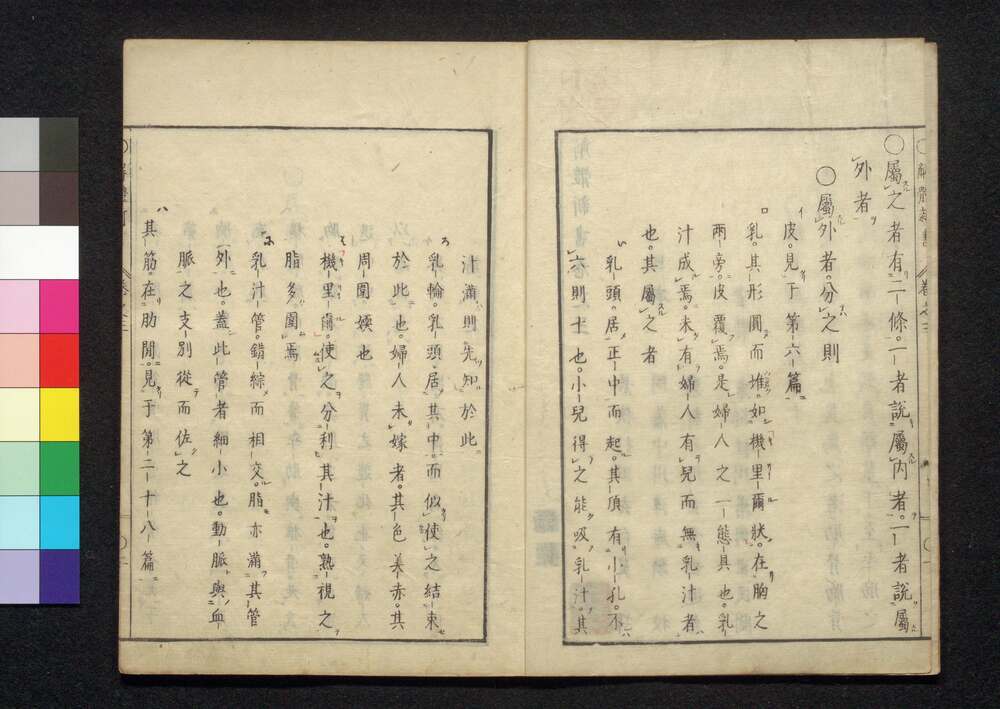 〇屬之者有二條。一者說屬內者。一者說屬
外者
〇屬外者。分之則
イ皮。見于第六篇
ロ乳。其形圓而堆。如機里爾狀。在胸之
兩旁。皮覆焉。是婦人之一態具也。乳
汁成焉。未有婦人有兒而無乳汁者
也。其屬之者
い乳頭。居正中而起。其頂有小孔。不
六則十也。小兒得之能吸乳汁。其
汁滿則先知於此
ろ乳輪。乳頭居其中。而似使之結束
於此也。婦人未嫁者。其色美赤。其
周圍媆也
は機里爾。使之分利其汁也。熟視之
脂多圍焉
に乳汁管。錯綜而相交。脂亦滿其管
外也。蓋此管者細小也。動脈與血
脈之支別從而佐之
ハ其筋。在肋閒。見于第二十八篇